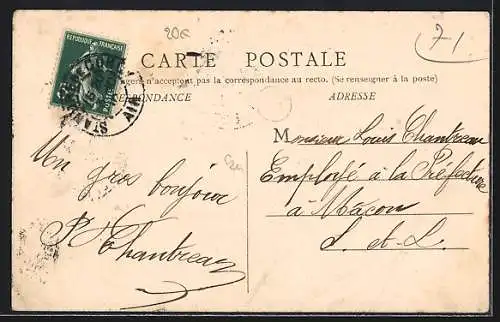 20c
71
RÉPUBLIQUE FRANÇAISE
POSTES
AIN
CARTE POSTALE
n'acceptent pas la correspondance au recto. (Se renseigner à la poste)
ADRESSE
Un gros bonjour
Chantreau
Monsieur Louis Chantreau
Employé à la Préfecture
à Mâcon
S. et. L.